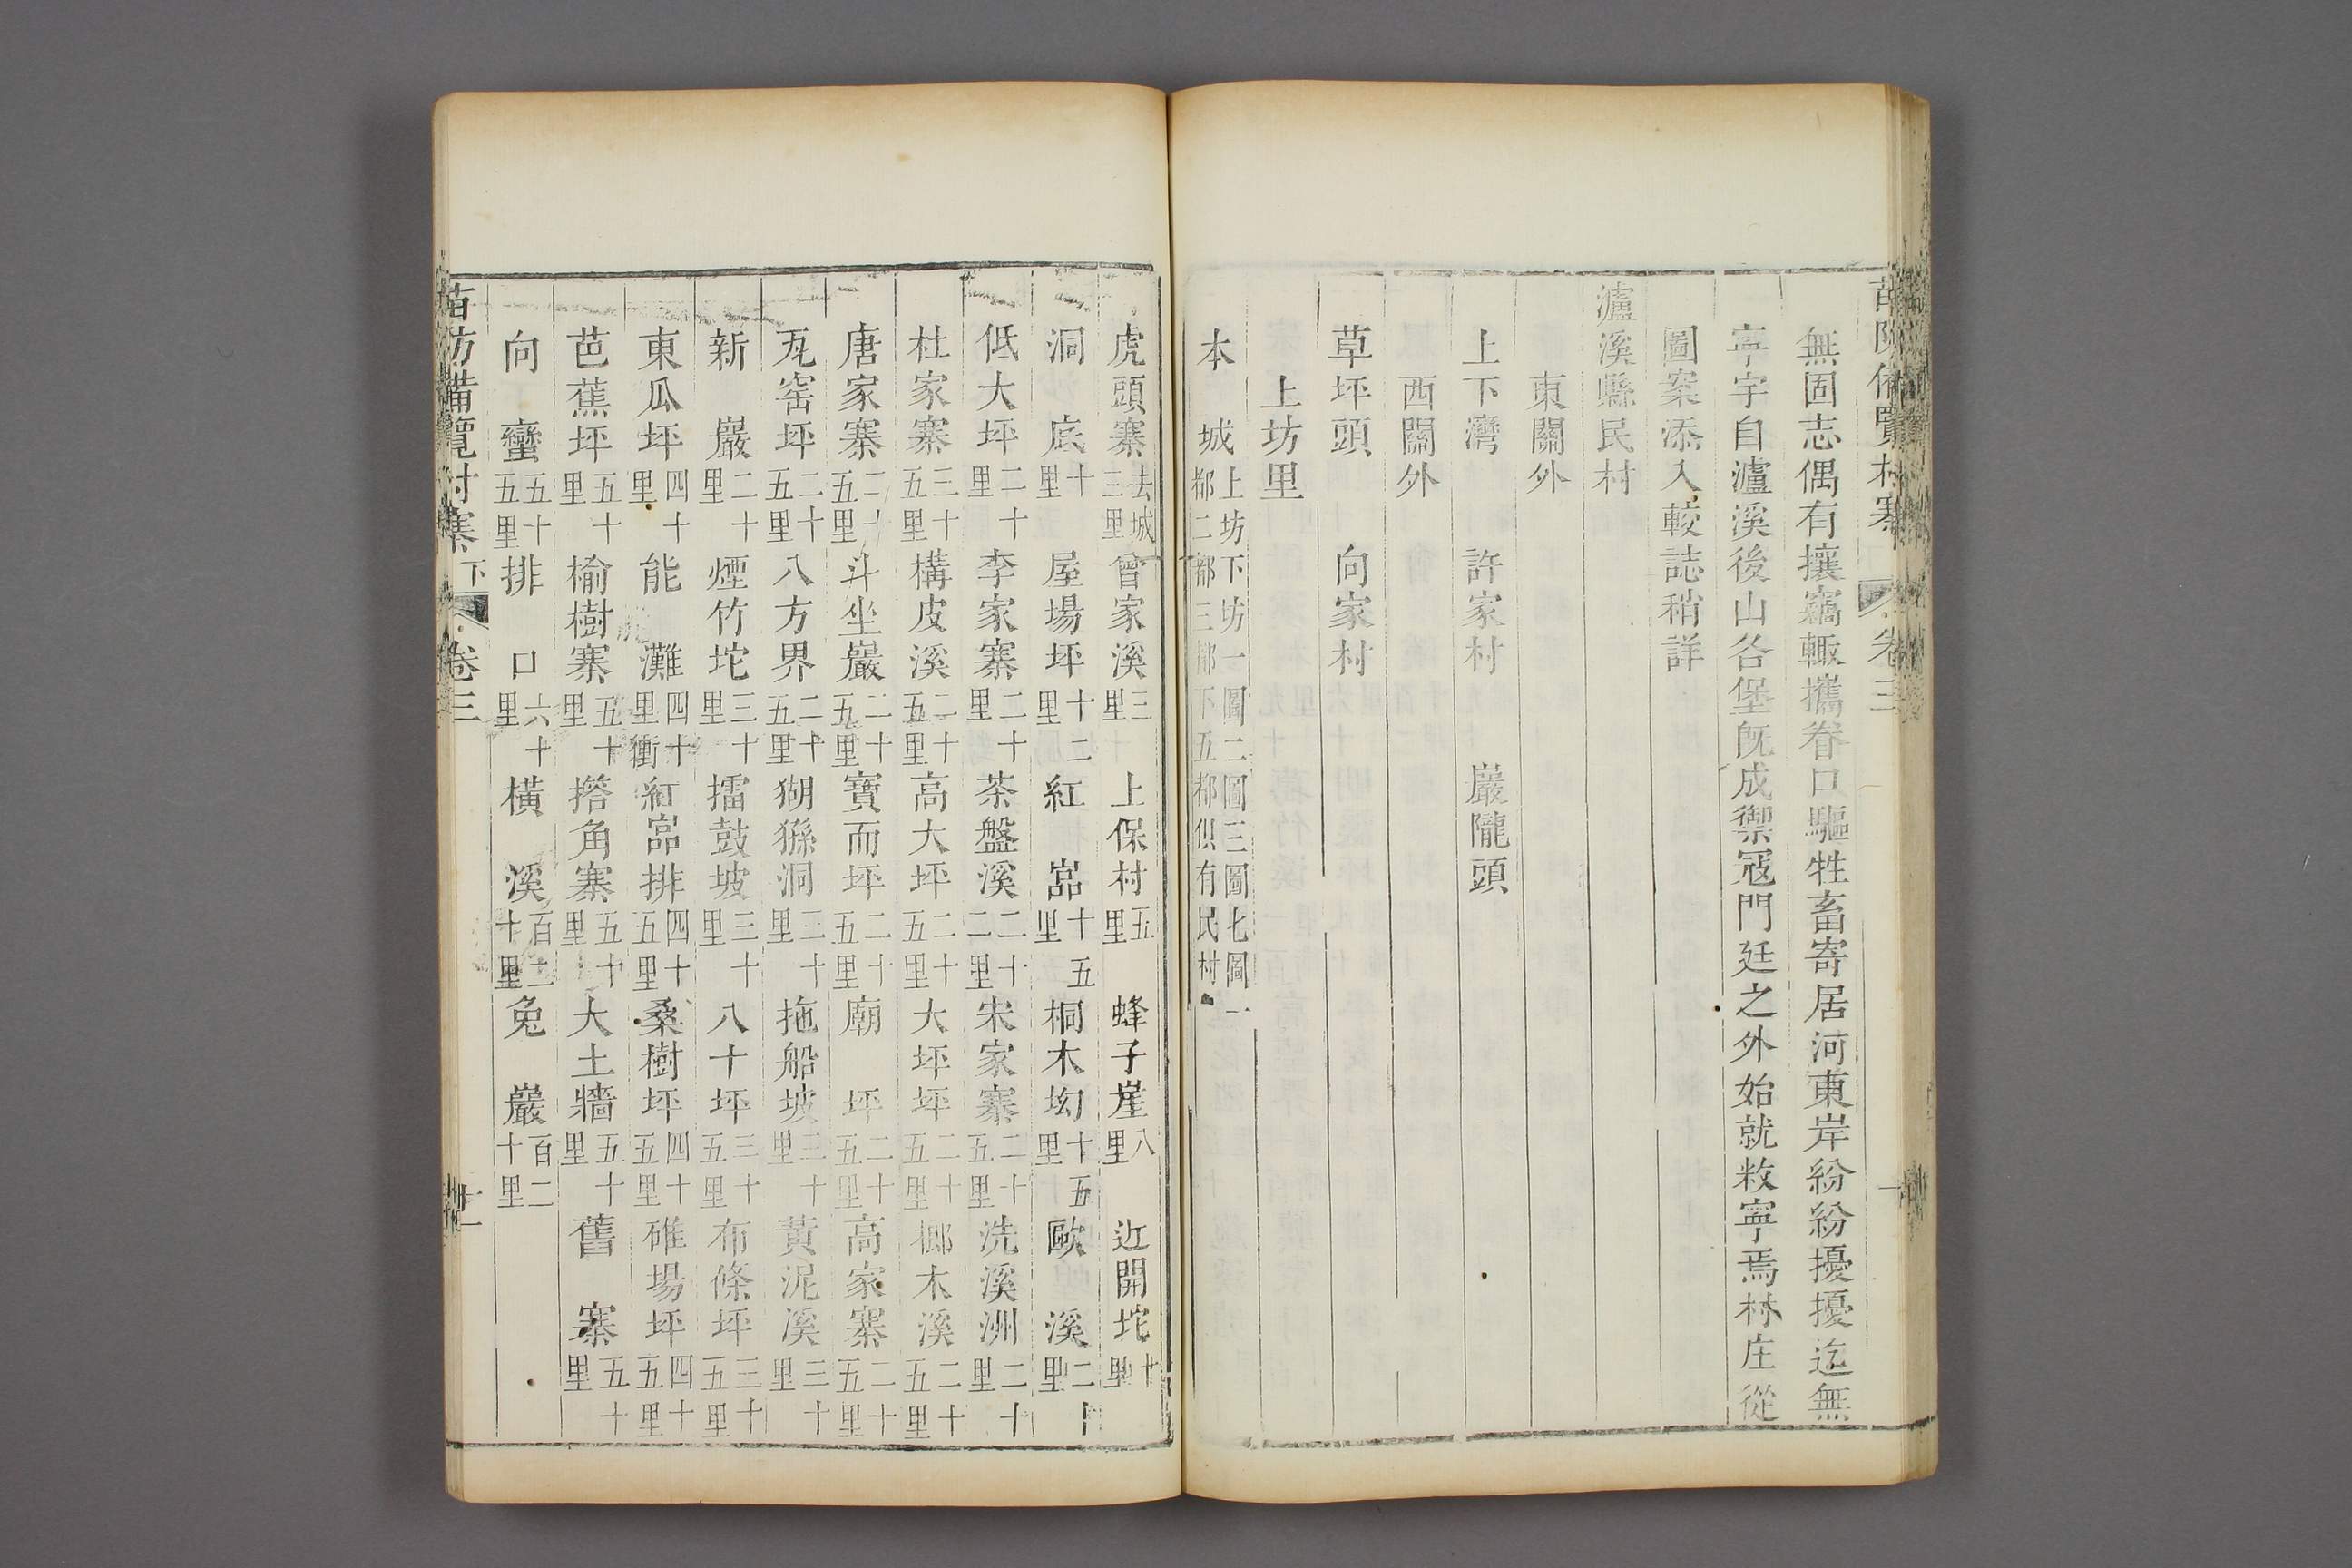 苗防備覽村寨 卷三
無固志偶有攘竊輙攜眷口驅牲畜寄居河東岸紛紛擾擾迄無
寧宇自瀘溪後山各堡既成禦冦門廷之外始就敉寧焉村庄從
圖案添入較誌稍詳
瀘溪縣民村
東關外
上下灣 許家村 巖隴頭
西關外
草坪頭 向家村
上坊里
本城上坊下坊一圖二圖三圖七圖一都二都三都下五都俱有民村
虎頭寨去城三里 曾家溪三里 上保村五里 蜂子崖八里 近開坨十里
洞底十里 屋場坪十二里 紅嵓十五里 桐木㘭十五里 歐溪二十里
低大坪二十里 李家寨二十里 茶盤溪二十二里 宋家寨二十五里 洗溪洲二十里
杜家寨三十五里 構皮溪二十五里 高大坪二十五里 大坪坪二十五里 榔木溪二十五里
唐家寨二十五里 斗坐巖二十五里 寶而坪二十五里 廟坪二十五里 高家寨二十五里
瓦窑坪二十五里 八方界二十五里 猢猻洞三十里 拖船坡三十里 黃泥溪三十里
新巖二十里 煙竹坨三十里 擂鼓坡三十里 八十坪三十五里 布條坪三十五里
東瓜坪四十里 能灘四十里衝 紅嵓排四十五里 桑樹坪四十五里 碓場坪四十五里
芭蕉坪五十里 榆樹寨五十里 撘角寨五十里 大土牆五十里 舊寨五十里
向蠻五十五里 排口六十里 橫溪百二十里 兔巖百二十里
苗防備覽村寨下 卷三 十二